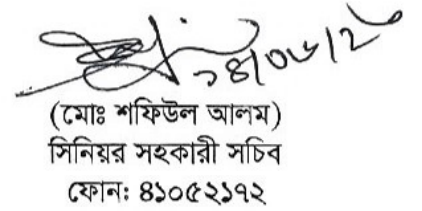 (মোঃ শফিউল আলম)
সিনিয়র সহকারী সচিব
ফোন: ৪১০৫২১৭২